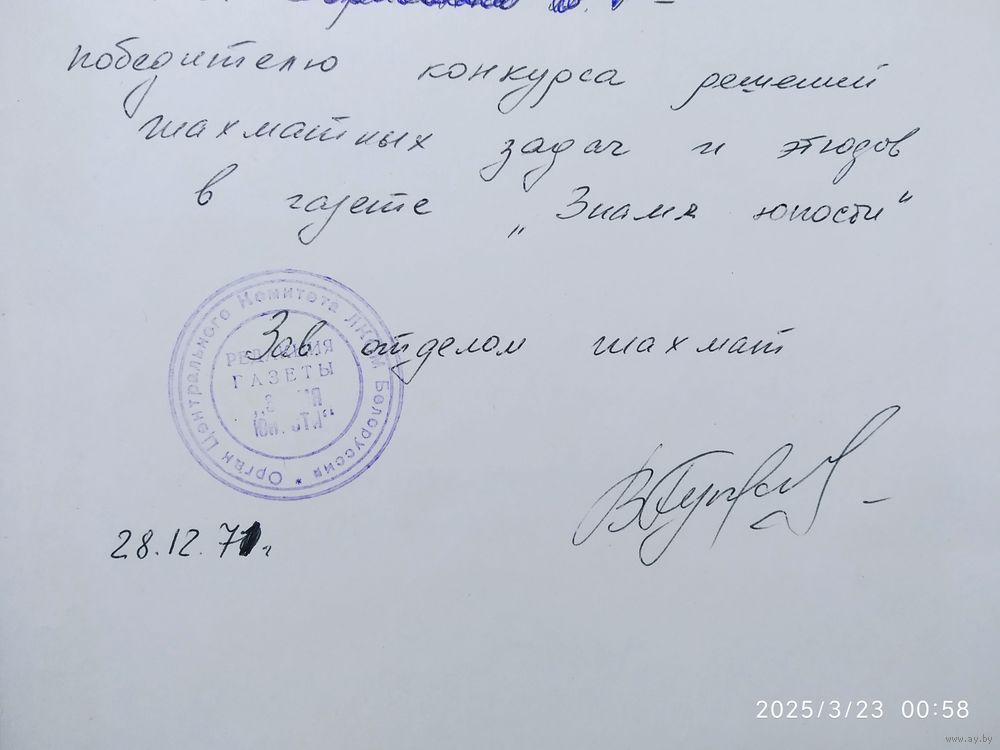 победителю конкурса решений
шахматных задач и этюдов
в газете „Знамя юности“
Зав отделом шахмат
Орган Центрального Комитета ЛКСМ Белоруссии *
РЕДАКЦИЯ
ГАЗЕТЫ
28.12.71г
2025/3/23 00:58
www.ay.by